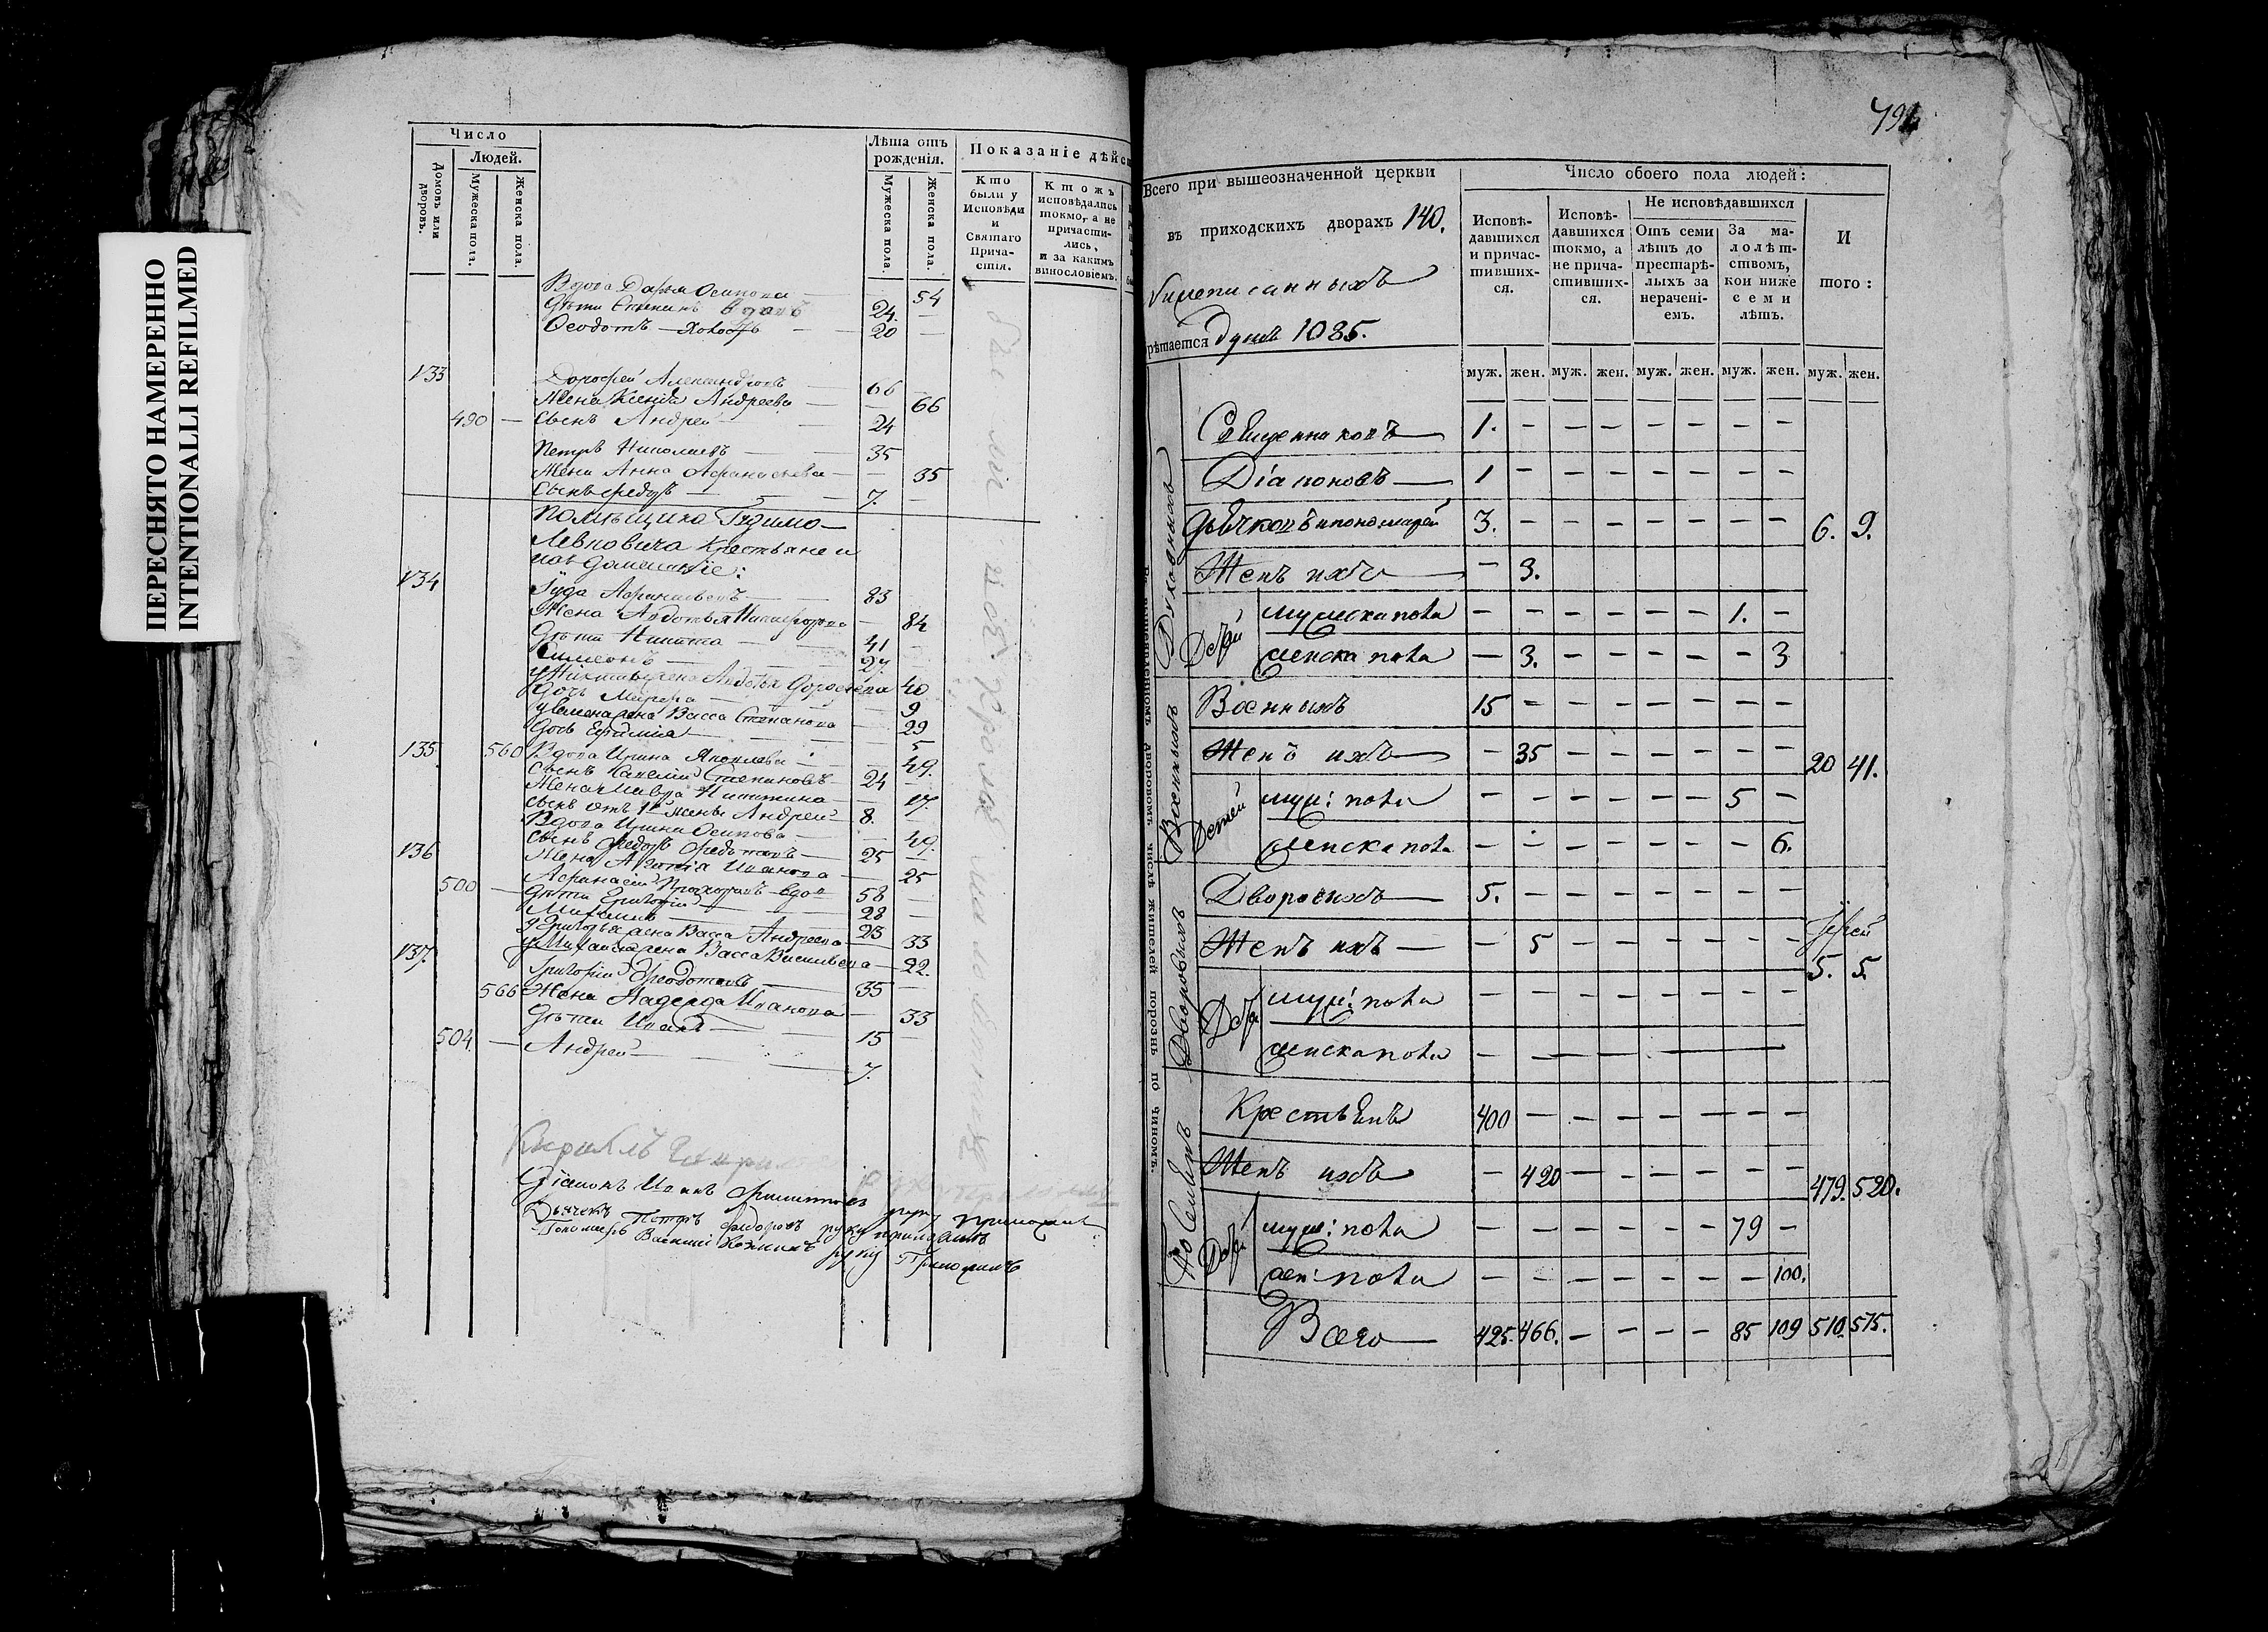 ПЕРЕСНЯТО НАМЕРЕННО
INTENTIONALLI REFILMED
Число
Людей.
домовъ или дворовъ.
Мужеска пола.
Женска пола.
Лѣта отъ рожденія.
Мужеска пола.
Женска пола.
Показаніе дѣйс
Кто были у Исповѣди и Святаго Прича-стія.
Ктожъ исповѣдались токмо, а не причасти-лись, и за какимъ винословіемъ.
Вдова Дарья Осипова — 54
Дѣти Стефанъ вдовъ 24. —
Ѳеодотъ — холостъ — 20 —
133 Дорофей Александровъ — 66 —
Жена Ксенія Андреева — — 66
490 — Сынъ Андрей — 24
Петръ Николаевъ — 35
Жена Анна Афанасьева — — 35
Сынъ Федоръ — 7. —
Помѣщика Гудимо-
Левковича крестьяне и
134 Іуда Афанасьевъ — 83
Жена Авдотья Никифорова — 84
Дѣти Никита — 41 —
Симеонъ — 27. —
У Никиты жена Авдотья Дорофеева 40
Дочь Марфа — — 9
У Семена жена Васса Степанова — 29
Дочь Евфимія — — 5
135. 560 Вдова Ирина Яковлева — — 49.
Сынъ Савелій Степановъ — 24 —
Жена Мавра Никитина — — 17.
Сынъ отъ 1й жены Андрей — 8.
Вдова Ирина Осипова — — 49.
136 Сынъ Федоръ Федотовъ — 25 —
Жена Агафія Иванова — — 25
500 — Афанасій Прохоровъ вдов 58 —
Дѣти Григорій — 28 —
Михаилъ — 23
У Григорья жена Васса Андреева — 33
137. У Михаила жена Васса Васильева — 22.
Григорій Ѳеодотовъ — 35 —
566 Жена Надежда Иванова — 33
Дѣти Иванъ — 15 —
504. — Андрей — 7.
Діаконъ Иванъ Филиповъ руку приложилъ
Дьячекъ Петръ Федоровъ руку приложилъ
Пономарь Василій руку Приложилъ
791
Всего при вышеозначенной церкви
въ приходскихъ дворахъ 140.
рѣтается душъ 1085.
Число обоего пола людей:
Исповѣ-давшихся и причас-тивших-ся.
Исповѣ-давшихся токмо, а не прича-стивших-ся.
Не исповѣдавшихся
Отъ семи лѣтъ до престарѣ-лыхъ за нерачені-емъ.
За ма-лолѣт-ствомъ, кои ниже семи лѣтъ.
И того:
муж. жен. муж. жен. муж. жен. муж. жен. муж. жен.
дворовомъ числѣ жителей порознь по чиномъ.
Духовныхъ
Священниковъ — 1. — — — — — — —
Діаконовъ — 1 — — — — — — —
Дьячковъ и пономарей 3. — — — — — — — 6. 9.
Женъ ихъ — — 3. — — — — — —
Дѣтей мужеска пола — — — — — — 1. —
женска пола — 3. — — — — — 3
Военныхъ
Военныхъ 15 — — — — — — —
Женъ ихъ — — 35 — — — — — — 20 41.
Детей муж: пола — — — — — — 5 —
женска пола — — — — — — — 6.
Дворовыхъ
Дворовыхъ — 5. — — — — — — —
Женъ ихъ — — 5 — — — — — — 5. 5.
Дѣтей муж: пола — — — — — — — —
женска пола — — — — —
Поселянъ
Крестьянъ 400 — — — — — — —
Женъ ихъ — 420 — — — — — — 479. 520.
Дѣтей муж: пола — — — — — — 79 —
жен: пола — — — — — — — 100.
Всего — 425. 466. — — — — 85 109 510. 575.